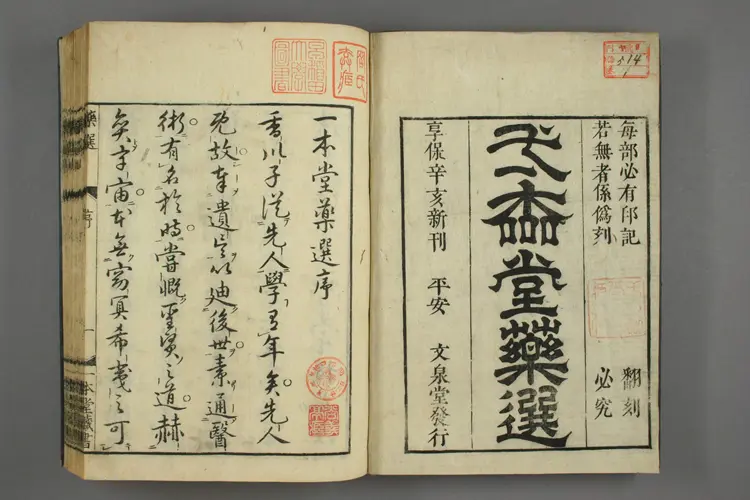 每部必有印記 翻刻
若無者係僞刻 必究
弌本堂藥選
享保辛亥新刊 平安 文泉堂發行
14
1
一本堂藥選序
香川子從先人學有年矣先人
既故奉遺言以廸後世素通醫
術有名於時嘗慨聖賢之道赫
奕宇宙本無窈冥希夷之可
藥選 序 一 本堂藏書